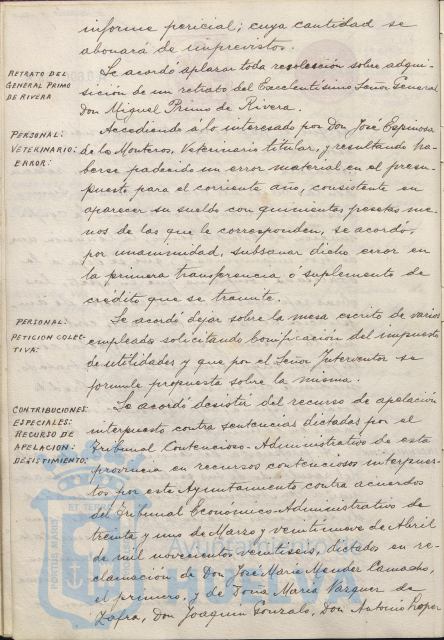 informe pericial; cuya cantidad se
abonará de imprevistos.
RETRATO DEL
GENERAL PRIMO
DE RIVERA
Se acordó aplazar toda resolución sobre adqui-
sición de un retrato del Excelentísimo Señor General
Don Miguel Primo de Rivera.
PERSONAL:
VETERINARIO:
ERROR:
Accediendo á lo interesado por Don José Espinosa
de los Monteros, Veterinario titular, y resultando ha-
berse padecido un error material en el presu-
puesto para el corriente año, consistente en
aparecer su sueldo con quinientas pesetas me-
nos de las que le corresponden, se acordó,
por unanimidad, subsanar dicho error en
la primera transferencia ó suplemento de
crédito que se tramite.
PERSONAL:
PETICION COLEC-
TIVA:
Se acordó dejar sobre la mesa escrito de varios
empleados solicitando bonificación del impuesto
de utilidades y que por el Señor Interventor se
formule propuesta sobre la misma.
CONTRIBUCIONES
ESPECIALES:
RECURSO DE
APELACION:
DESISTIMIENTO:
Se acordó desistir del recurso de apelación
interpuesto contra sentencias dictadas por el
Tribunal Contencioso-Administrativo de esta
provincia en recursos contenciosos interpues-
tos por este Ayuntamiento contra acuerdos
del Tribunal Económico-Administrativo de
treinta y uno de Marzo y veintinueve de Abril
de mil novecientos veintiseis, dictados en re-
clamación de Don José María Mendez Camacho,
el primero, y de Doña María Vazquez de
Zafra, Don Joaquín Gonzalo, Don Antonio Lopez